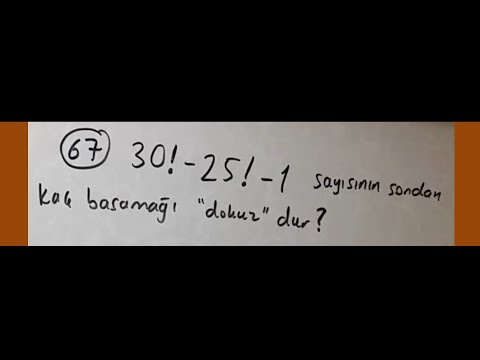 67 30!-25!-1 sayısının sondan
kaç basamağı "dokuz" dur?